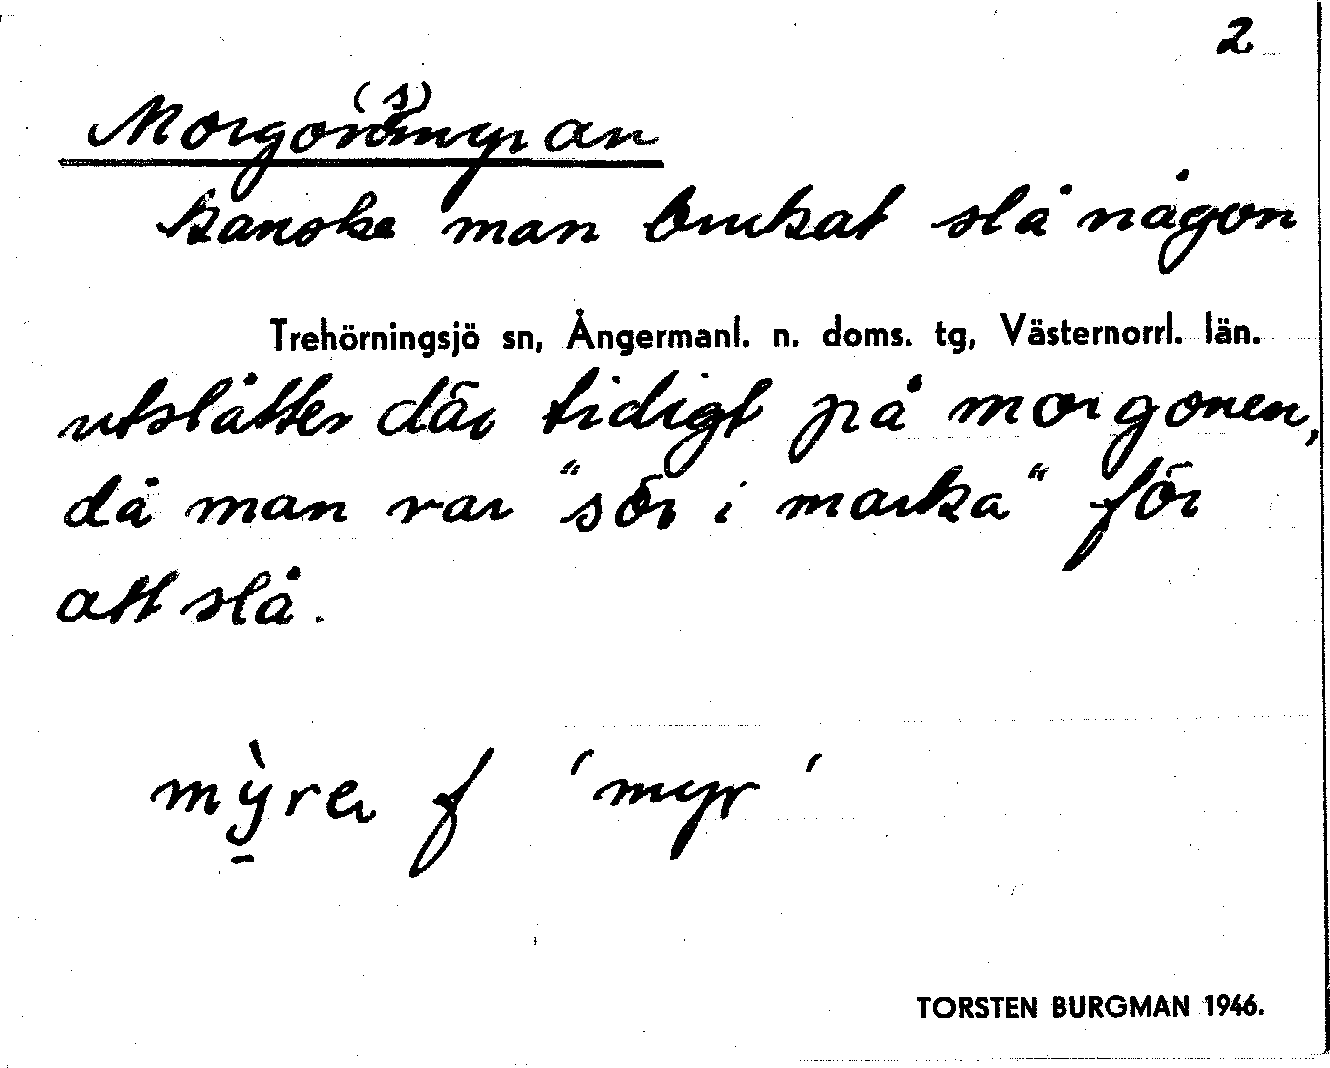 2
Morgon(s)myran
kanske man brukat slå någon
Trehörningsjö sn, Ångermanl. n. doms. tg, Västernorrl. län.
utslåtter där tidigt på morgonen,
då man var "sör i marka" för
att slå.
mỳ̠ra f 'myr'
TORSTEN BURGMAN 1946.